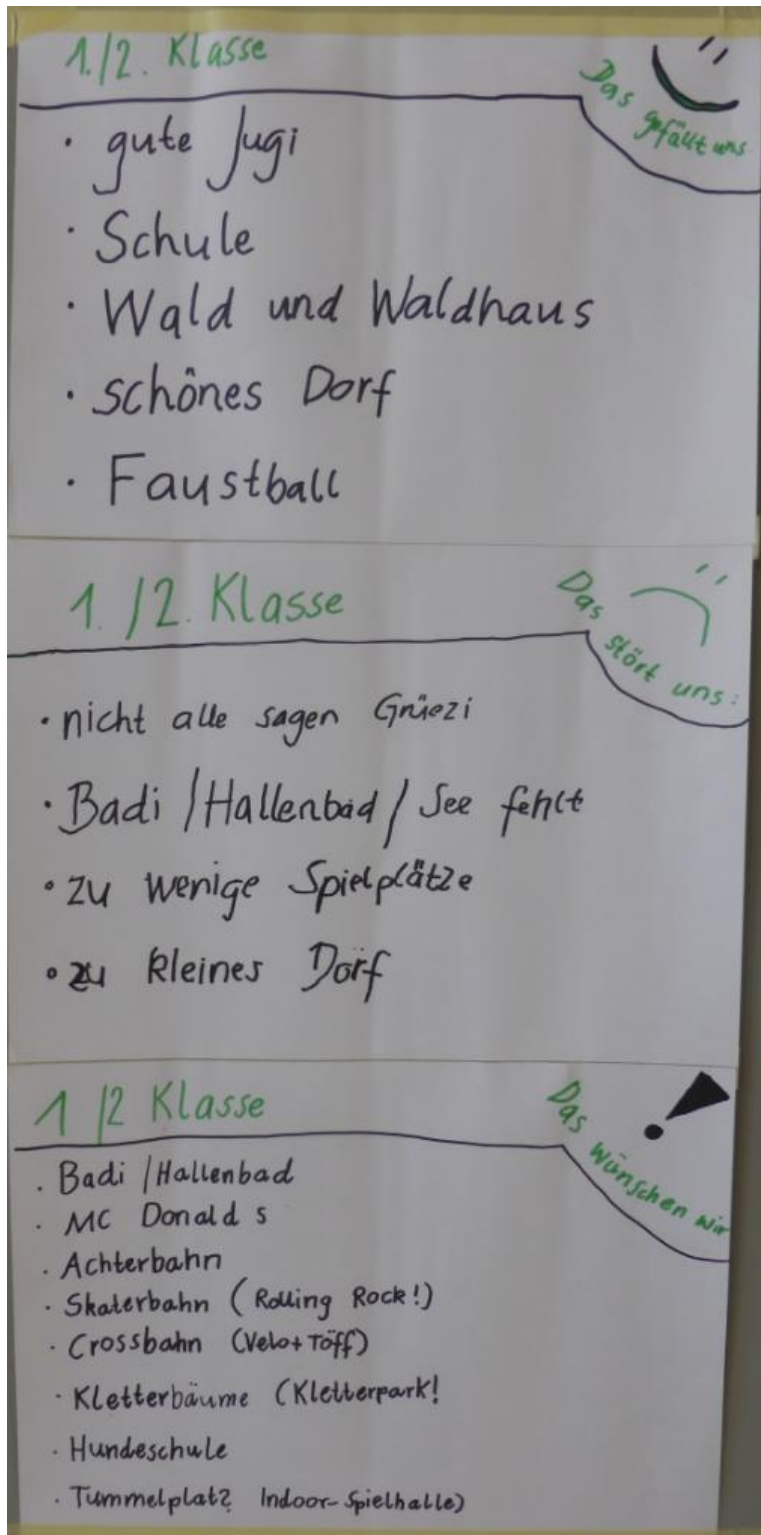 1./2. Klasse
Das gefällt uns
· gute Jugi
· Schule
· Wald und Waldhaus
· schönes Dorf
· Faustball
1./2. Klasse
Das stört uns:
· nicht alle sagen Grüezi
· Badi / Hallenbad / See fehlt
· zu wenige Spielplätze
· zu kleines Dorf
1/2 Klasse
Das wünschen wir
· Badi / Hallenbad
· MC Donald s
· Achterbahn
· Skaterbahn (Rolling Rock!)
· Crossbahn (Velo+Töff)
· Kletterbäume (Kletterpark!
· Hundeschule
· Tummelplatz Indoor-Spielhalle)